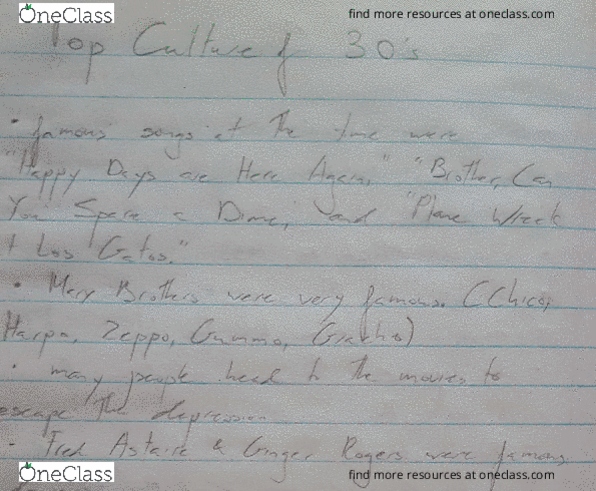 OneClass
find more resources at oneclass.com
Pop Culture of 30's
• famous songs at the time were
"Happy Days are Here Again," "Brother, Can
You Spare a Dime," and "Plane Wreck
t Los Gatos."
• Marx Brothers were very famous. (Chico,
Harpo, Zeppo, Gummo, Groucho)
• many people head to the movies to
escape the depression
- Fred Astaire & Ginger Rogers were famous
OneClass
find more resources at oneclass.com